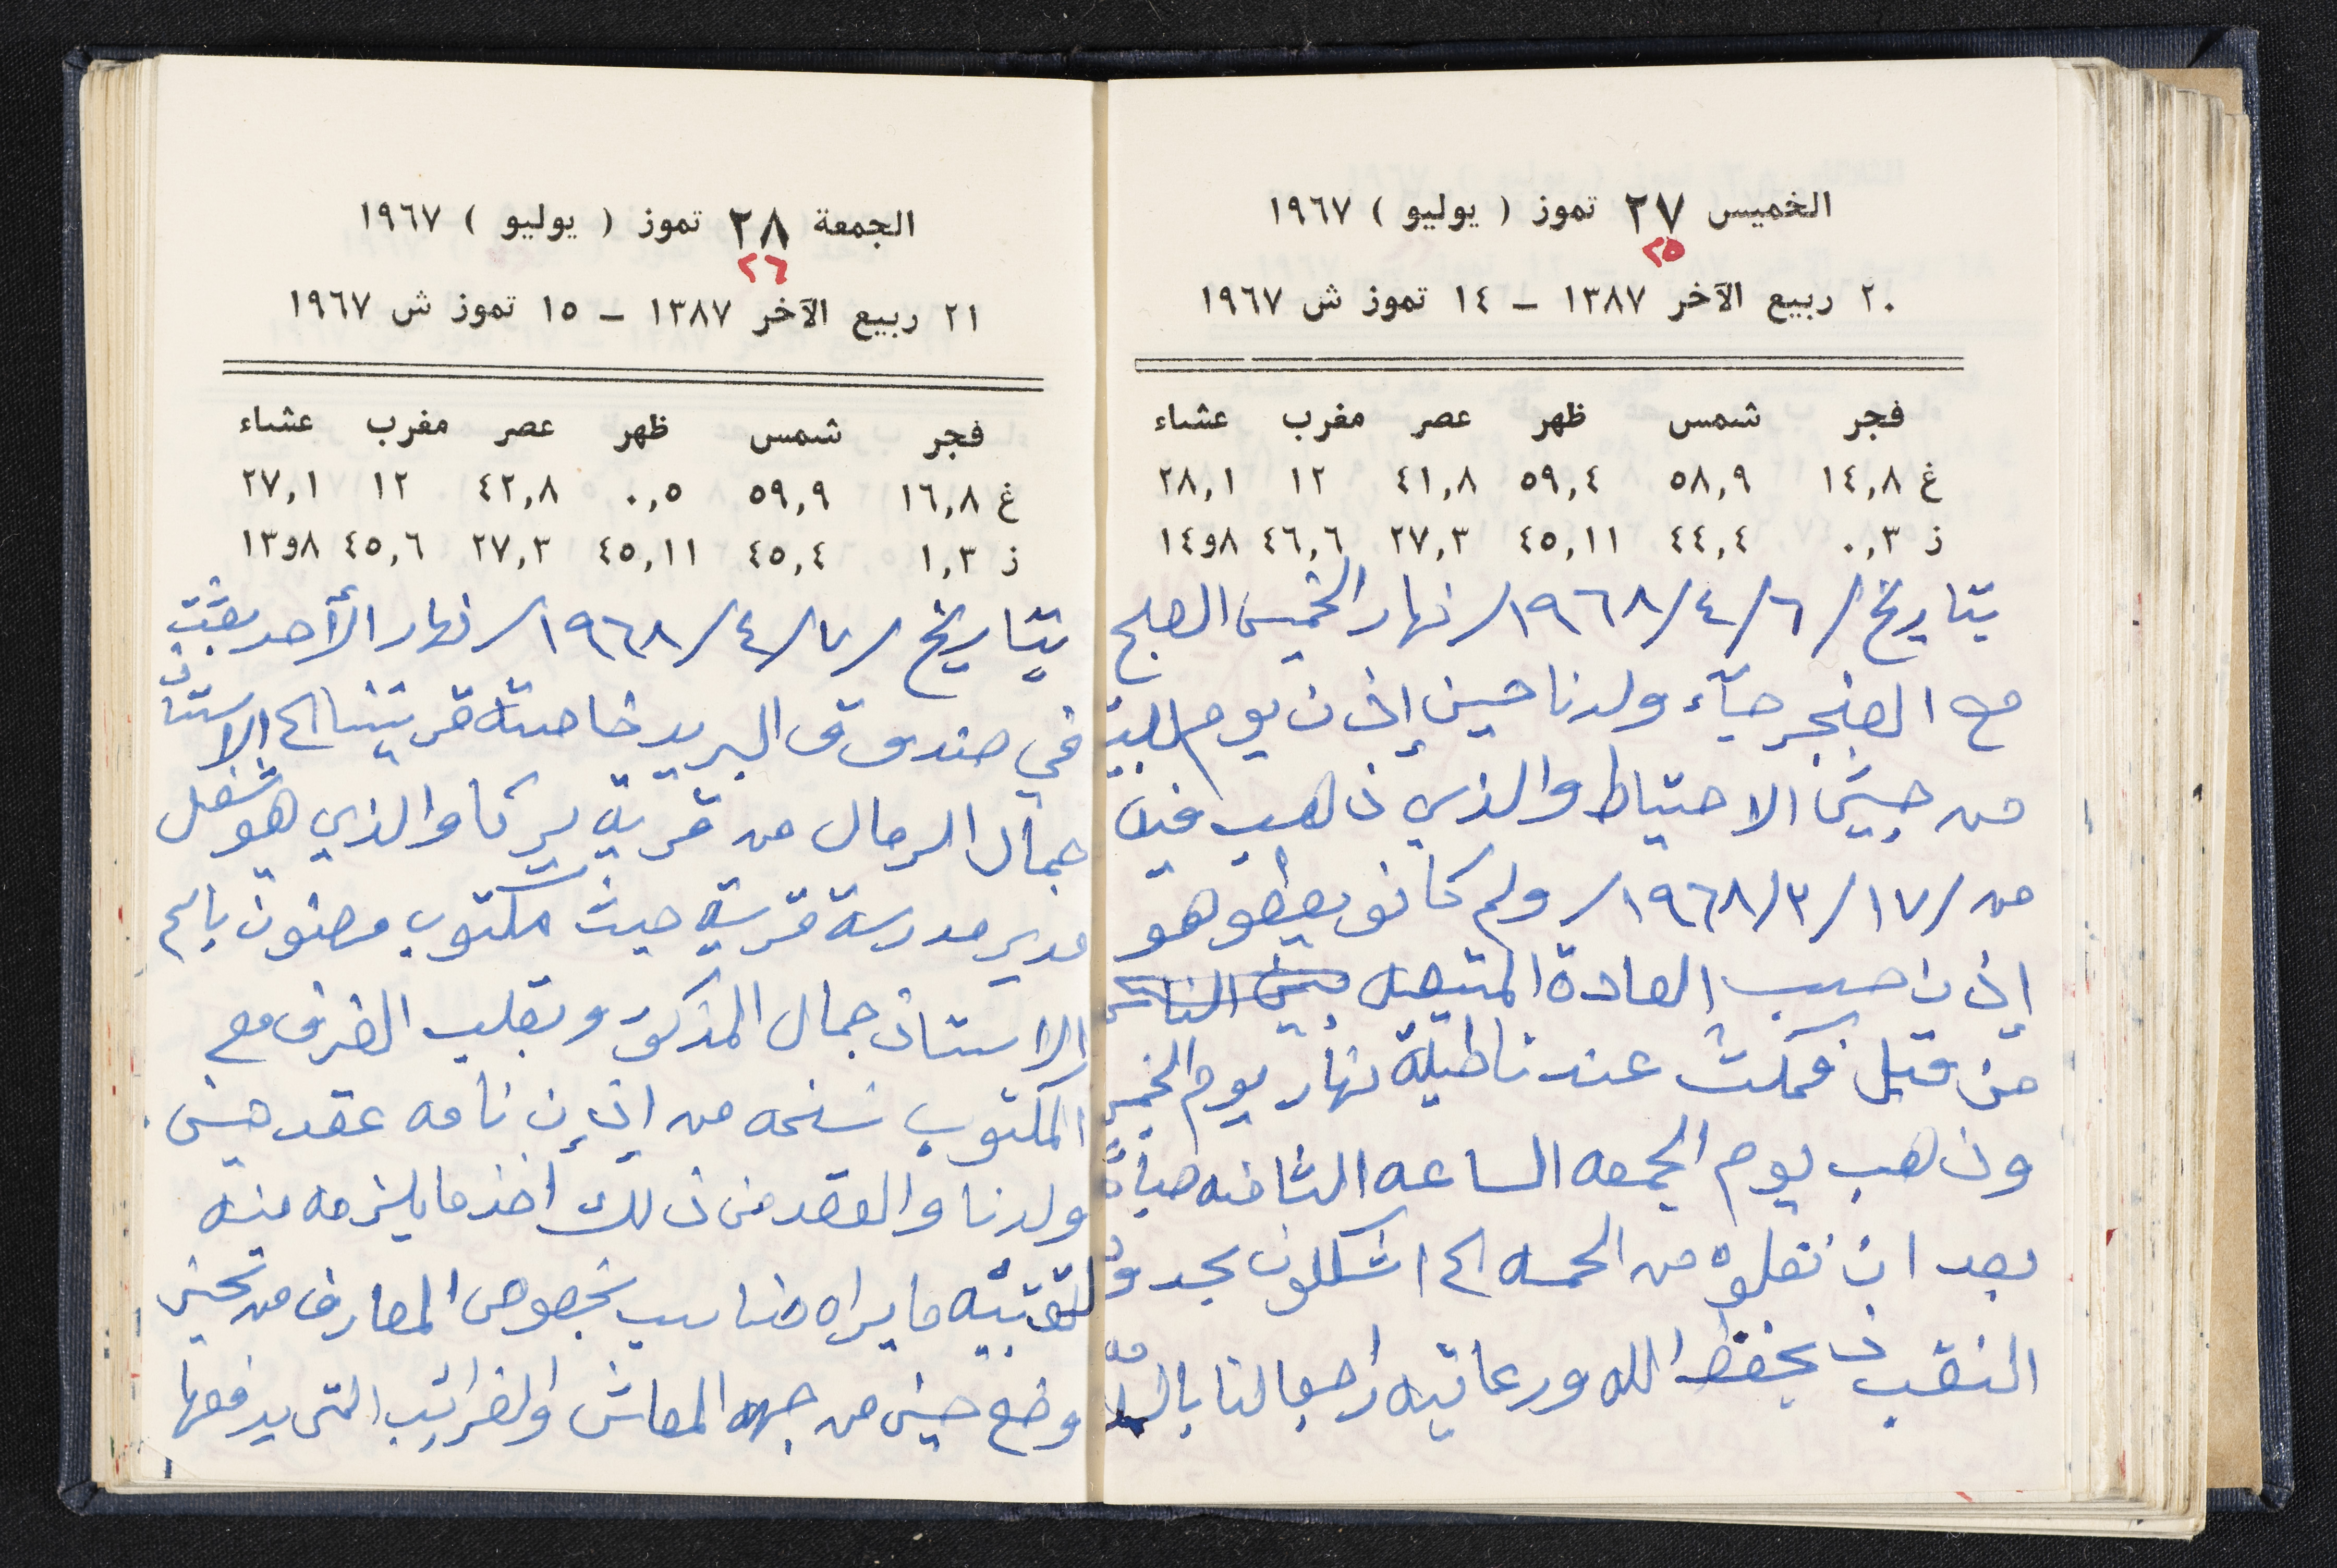 الخميس ٢٧ تموز ( يوليو ) ١٩٦٧
٢٥
٢٠ ربيع الآخر ١٣٨٧ – ١٤ تموز ش ١٩٦٧
فجر شمس ظهر عصر مغرب عشاء
غ ١٤,٨ ٥٨,٩ ٥٩,٤ ٤١,٨ ١٢ ٢٨,١
ز ٠,٣ ٤٤,٤ ٤٥,١١ ٢٧,٣ ٤٦,٦ ٨و١٤
بتاريخ /٦/٤/١٩٦٨/ نهار الخميس الصبح
مع الفجر جآء ولدنا حسن إذن يوم
من جيش الاحتياط والذي ذاهب فيه
من /١٧/٣/١٩٦٨/ ولم كانو يعطوهو
إذن حسب العادة المتبعه
من قبل فمكث عندنا طيلة نهار يوم الخميس
وذهب يوم الجمعه الساعه الثامنه صباحًا
بعد ان نقلوه من الحمه الى اشكلون بجدود
النقب بحفظ الله ورعايته راجعا لنا
الجمعة ٢٨ تموز ( يوليو ) ١٩٦٧
٢٦
٢١ ربيع الآخر ١٣٨٧ – ١٥ تموز ش ١٩٦٧
فجر شمس ظهر عصر مغرب عشاء
غ ١٦,٨ ٥٩,٩ ٠,٥ ٤٢,٨ ١٢ ٢٧,١
ز ١,٣ ٤٥,٤ ٤٥,١١ ٢٧,٣ ٤٥,٦ ٨و١٣
بتاريخ /٧/٤/١٩٦٨/ نهار الأحد بعثت
في صندوق البريد خاصة قريتنا الى الاستاذ
جمال الرمال من قرية يركا والذي هو شغل
مدير مدرسة قريته حيث مكتوب معنون باسم
الاستاذ جمال المذكور وبقلب الظرف مع
المكتوب نسخه من عقد حسن
ولدنا والقصد من ذلك اخذ ما يلزمه منه
ما يراه مناسب بخصوص المعارف من
وضع حسن من جهة المعاش والضرائب التي يدفعها